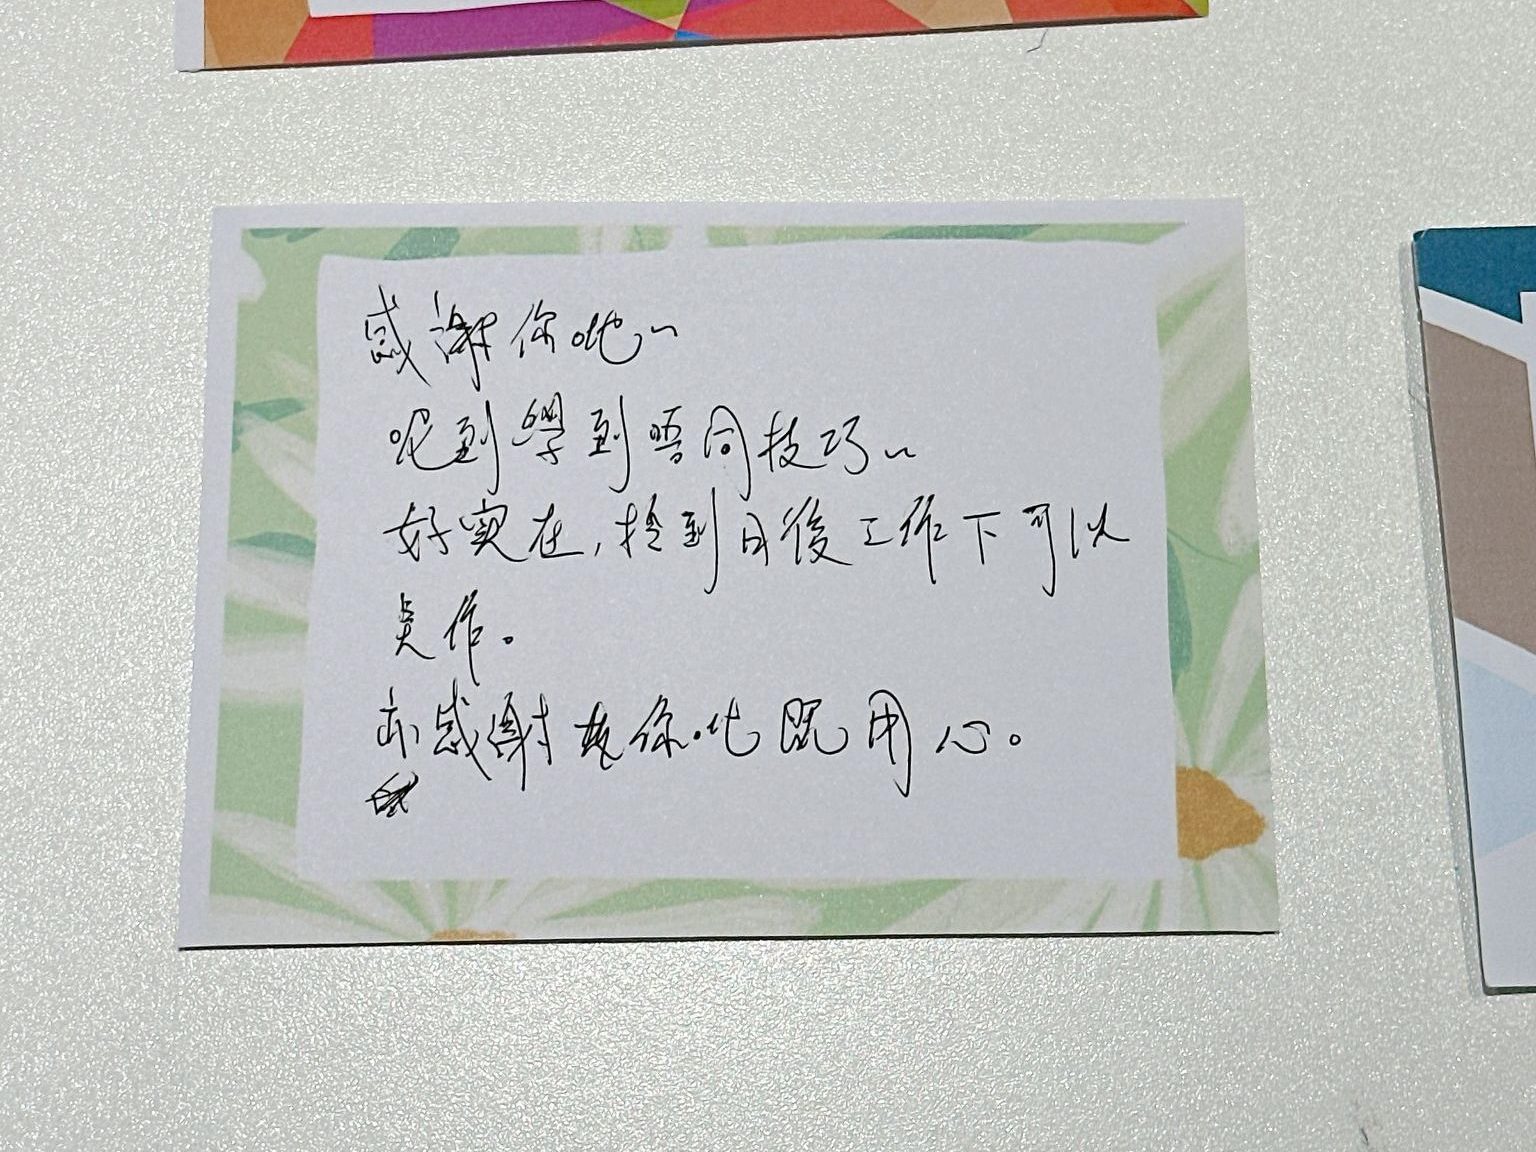 感謝你哋~
呢到學到唔同技巧~
好實在,拎到日後工作下可以
亦感謝你哋既用心。